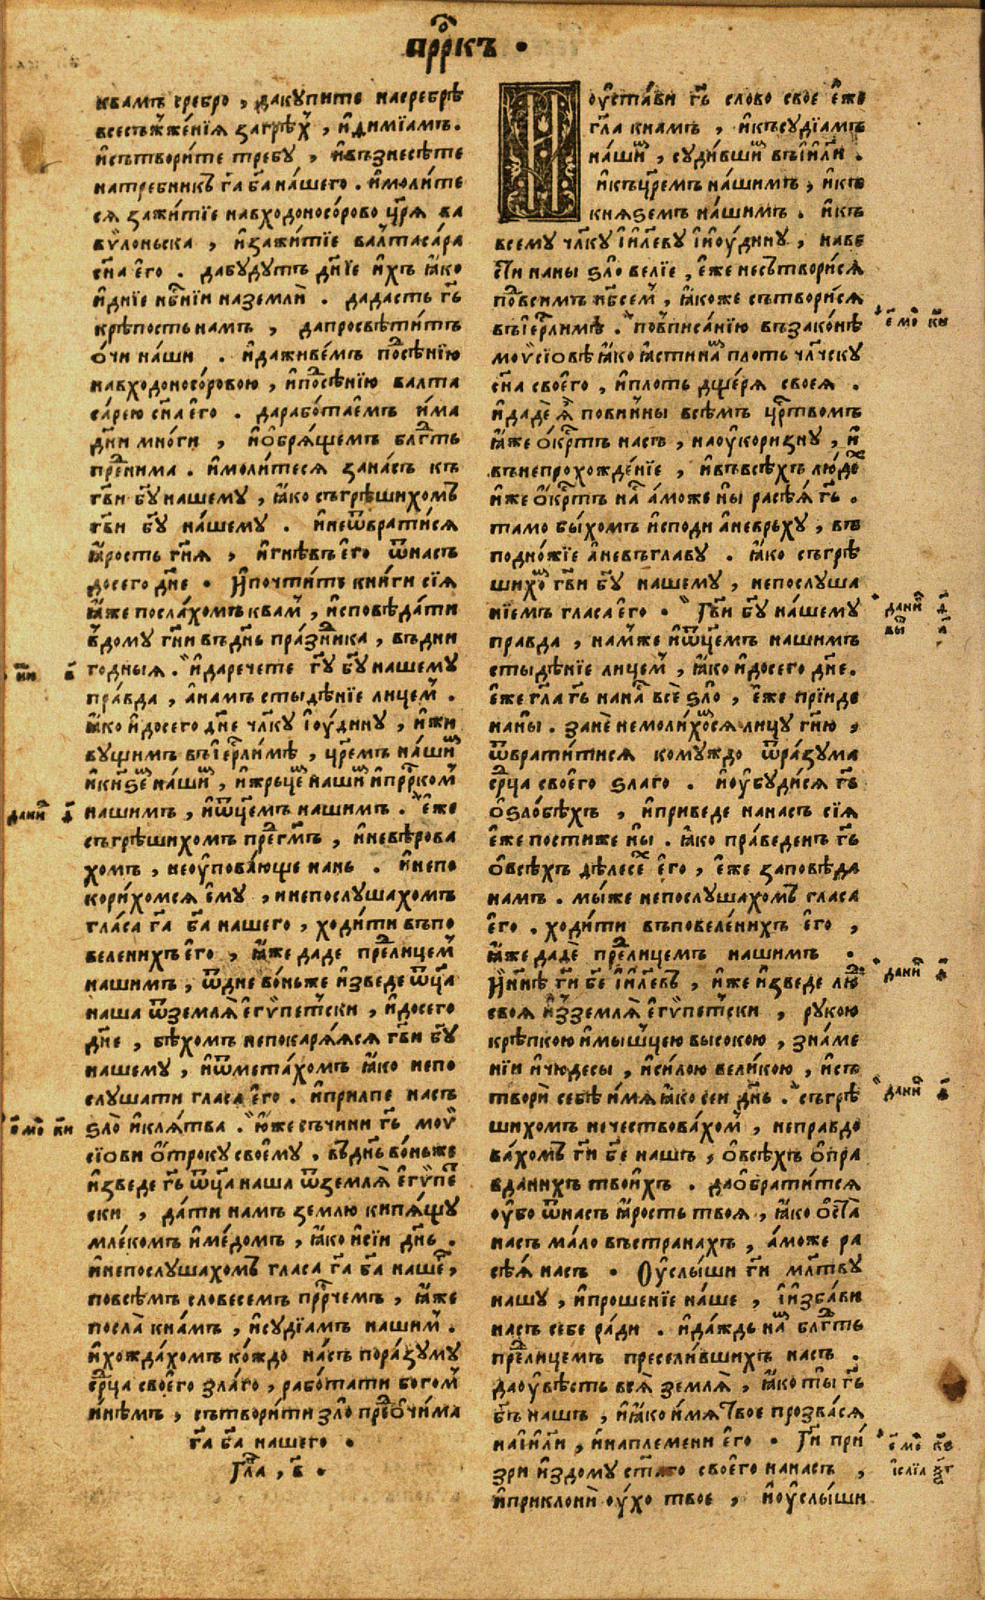 прⷪ҇ркъ .
квамъ сребро , дакупите насребрѣ
всесъжже́нїѧ загрѣⷯ , и҆димїамъ .
и҆сътвори́те требу , и҆възнесѣ́те
натребникъ гⷭ҇а бг҃а на́шего . и҆моли́те
сѧ зажитїе навходоносо́рово цр҃ѧ ва
вѷлоньска , и҆зажитїе валтаса́ра
сн҃а е҆го . дабудутъ дн҃їе и҆хъ ꙗ҆ко
и҆днїе нбⷭ҇нїи наземлѝ . дадасть гь҃
крѣпостьнамъ , дапросвѣти́тъ
о҆чи на́ши . и҆даживе́мъ поⷣсѣнїю
навходоносо́ровою , и҆поⷣсѣнїю валта
са́рею сн҃а е҆го . дарабо́таемъ и҆ма
дн҃и мно́ги , и҆ѡбрѧ́щемъ блгⷣть
преⷣнима . и҆моли́тесѧ зана́съ къ
гв҃и бг҃у нашему , ꙗ҆ко съгрѣшихомъ
гв҃и бг҃у на́шему . и҆неѿврати́сѧ
ꙗ҆рость гн҃ѧ , и҆гнѣвъ е҆го ѿнасъ
досего дн҃е . И҆почти́тъ кни́ги сїѧ
ꙗ҆же посла́хомъ квамⸯ , и҆сповѣ́дати
вⸯдому гн҃и въднь пра́зⷣника , въдни
годныѧ . и҆даречете гу҃ бг҃у нашему
пра́вда , а҆намъ стыдѣ́нїе лицемⸯ .
ꙗ҆ко и҆досего дн҃е чл҃ку і҆оу́дину , и҆жи
вущимъ въі҆ерⷭ҇лимѣ , цр҃емъ на́шиⷨ
и҆кнѧ҃ѕеⷨ на́шиⷨ , и҆жрьцеⷨ нашиⷨ и҆прⷪ҇ркомⸯ
нашимъ , и҆ѿц҃емъ нашимъ . е҆же
съгрѣшихомъ преⷣгмъ҃ , и҆невѣ́рова
хомъ , неоу҆пова́юще нань . и҆непо
кори́хомсѧ е҆му , ннепослушахомъ
гла́са гⷭ҇а бг҃а нашего , ходи́ти въпо
веленихъ е҆го , ꙗ҆же даде преⷣлицемⸯ
нашимъ , ѿдне во́ньже и҆зведе ѿц҃а
наша ѿземлѧ̀ е҆гѵпетⸯски , и҆досего
дн҃е , бѣхомъ непокарѧ́ѧсѧ гв҃и бг҃у
нашему , и҆ѿмета́хомъ ꙗ҆ко непо
слушати гласа е҆го . и҆прилпе насъ
ѕло̀ и҆клѧ́тва . ю҆же съчини гь҃ моѵ
сїови о҆троку своему . въднь во́ньже
и҆зведе гь҃ ѿц҃а наша ѿземлѧ̀ е҆гѵпеⸯ
ски , да́ти намъ землю кипѧ́щу
мле́комъ и҆ме́домъ , ꙗ҆ко и҆сїи днь .
и҆непослушахомъ гласа гⷭ҇а бг҃а нашеⷢ ,
повсѣмъ словесемъ прⷪ҇рчемъ , ꙗ҆же
посла̀ кна́мъ , и҆судїамъ нашимⸯ .
и҆хожда́хомъ ко́ждо на́съ пора́зуму
ср҃ца своего зла́го , рабо́тати богомⸯ
и҆нѣмъ , сътвори́ти зло̀ преⷣо҆чи́ма
гⷭ҇а бг҃а нашего .
Гл҃ва , в҃ .
Поу҆ста́ви гь҃ слово свое е҆же
гл҃а кнамъ , и҆късудїамъ
на́шиⷨ , суди́вшиⷨ въі҆и҃ли .
и҆кцр҃емъ на́шимъ , и҆къ
кнѧѕемъ на́шимъ . и҆къ
всему чл҃ку і҆и҃леву и҆і҆оу́дину , наве
сти наны ѕло̀ велїе , е҆же несътвори́сѧ
поⷣвсимъ нбⷭ҇семⸯ , ꙗ҆коже сътвори́сѧ
въі҆ерⷭ҇лимѣ . повⸯписа́нїю възако́нѣ
моѵсїовѣ ꙗ҆ко ꙗ҆стинаⷨ плоть чл҃ческу
сн҃а своего , и҆плоть дще́рѧ своеѧ .
и҆даде̏ ѧ҆̀ пови́нны всѣмъ црⷭ҇твомъ
ꙗ҆же о҆крⷭ҇тъ насъ , наоу҆кори́зну , и҆
вънепрохожде́нїе , и҆въвсѣхъ лю́деⷯ
и҆же о҆крⷭ҇тъ наⷭ а҆може ны̀ расѣѧ гь҃ .
тамо бы́хомъ и҆споди а҆неврьху , въ
подно́жїе а҆невъглаву . ꙗ҆ко съгрѣ
шихоⷨ гв҃и бг҃у нашему , непослуша
нїемъ гласа е҆го . Гв҃и бг҃у на́шему
правда , намⸯже и҆ѿц҃емъ нашимъ
стыдѣ́нїе лицемⸯ , ꙗ҆ко и҆досего дн҃е .
е҆же гл҃а гь҃ нанаⷭ все̏ ѕло̀ , е҆же прїиде
наны̀ . зане̏ немоли́хоⷨсѧ лицу гн҃ю ,
ѿврати́тисѧ комуждо ѿра́зума
ср҃ца своего ѕлаго . и҆оу҆буди́сѧ гь҃
о҆ѕло́бѣхъ , и҆приведе нанасъ сїѧ
е҆же постиже ны̀ . ꙗ҆ко пра́веденъ гь҃
о҆всѣхъ дѣлесеⷯ е҆го , е҆же заповѣ́да
намъ . мы́же непослушахомъ гласа
е҆го . ходи́ти въповеле́нихъ е҆го ,
ꙗ҆же даде̏ преⷣлицемъ нашимъ .
И҆нн҃ѣ гⷭ҇и бж҃е і҆и҃левъ , и҆же и҆зведе люⷣ
своѧ и҆зⸯземлѧ̀ е҆гѵпетⸯски , рукою
крѣпкою и҆мы́шцею высокою , зна́ме
нїи и҆чюдесы , и҆си́лою вели́кою , и҆съ
твори̏ себѣ̀ и҆мѧ ꙗ҆ко сеи днь . съгрѣ
шихомъ нечествова́хомⸯ , неправдо
ва́хомъ гⷭ҇и бж҃е нашъ , о҆всѣхъ о҆пра
вданихъ твои́хъ . даобрати́тсѧ
оу҆бо ѿнасъ ꙗ҆рость твоѧ , ꙗ҆ко о҆ста̀
насъ ма́ло въстранахъ , а҆може ра
сѣѧ́ насъ . Оу҆слы́ши гⷭ҇и мл҃тву
нашу , и҆прошенїе на́ше , і҆и҆зба́ви
насъ себе ра́ди . и҆да́ждь наⷨ блгⷣть
преⷣлицемъ пресели́вшихъ насъ .
даоу҆вѣсть всѧ̀ землѧ̀ , ꙗ҆ко ты̀ гь҃
бг҃ъ нашъ , и҆ꙗ҆ко и҆мѧ Твое прозва́сѧ
наі҆и҃ли , и҆наплемени е҆го . Гⷭ҇и при́
зри и҆здому ст҃а́го своего нанасъ ,
и҆приклони̏ оу҆хо твое , и҆оу҆слы́ши